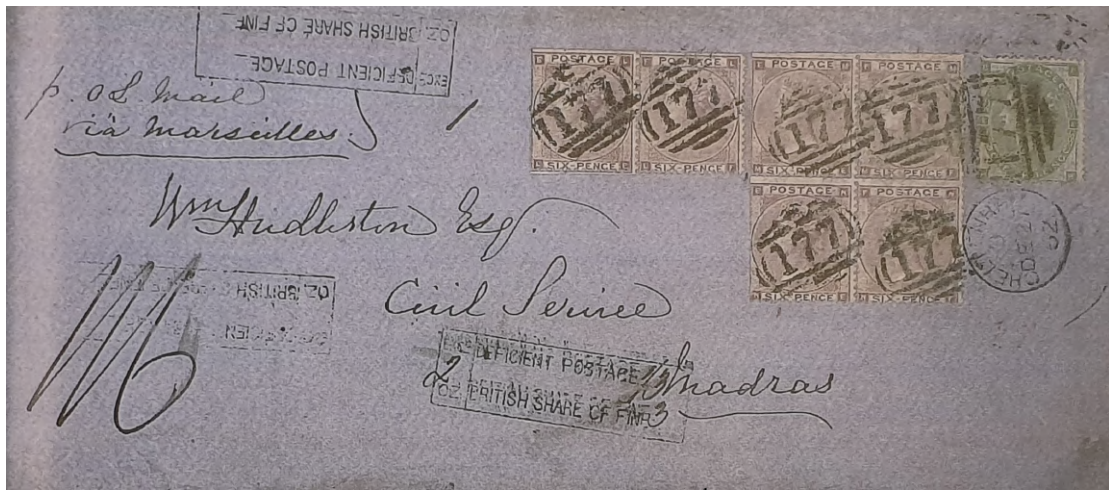 EXCE DEFICIENT POSTAGE
OZ. BRITISH SHARE OF FINE
p. O L Mail
via Marseilles.
POSTAGE
SIX-PENCE
177
POSTAGE
SIX-PENCE
177
POSTAGE
SIX-PENCE
177
POSTAGE
SIX-PENCE
177
177
POSTAGE
SIX-PENCE
177
POSTAGE
SIX-PENCE
177
CHELTENHAM
Wm Hudleston Esq.
Civil Service
Madras
OZ. BRITISH
DEFICIENT POSTAGE
2 OZ. BRITISH SHARE OF FINE 3